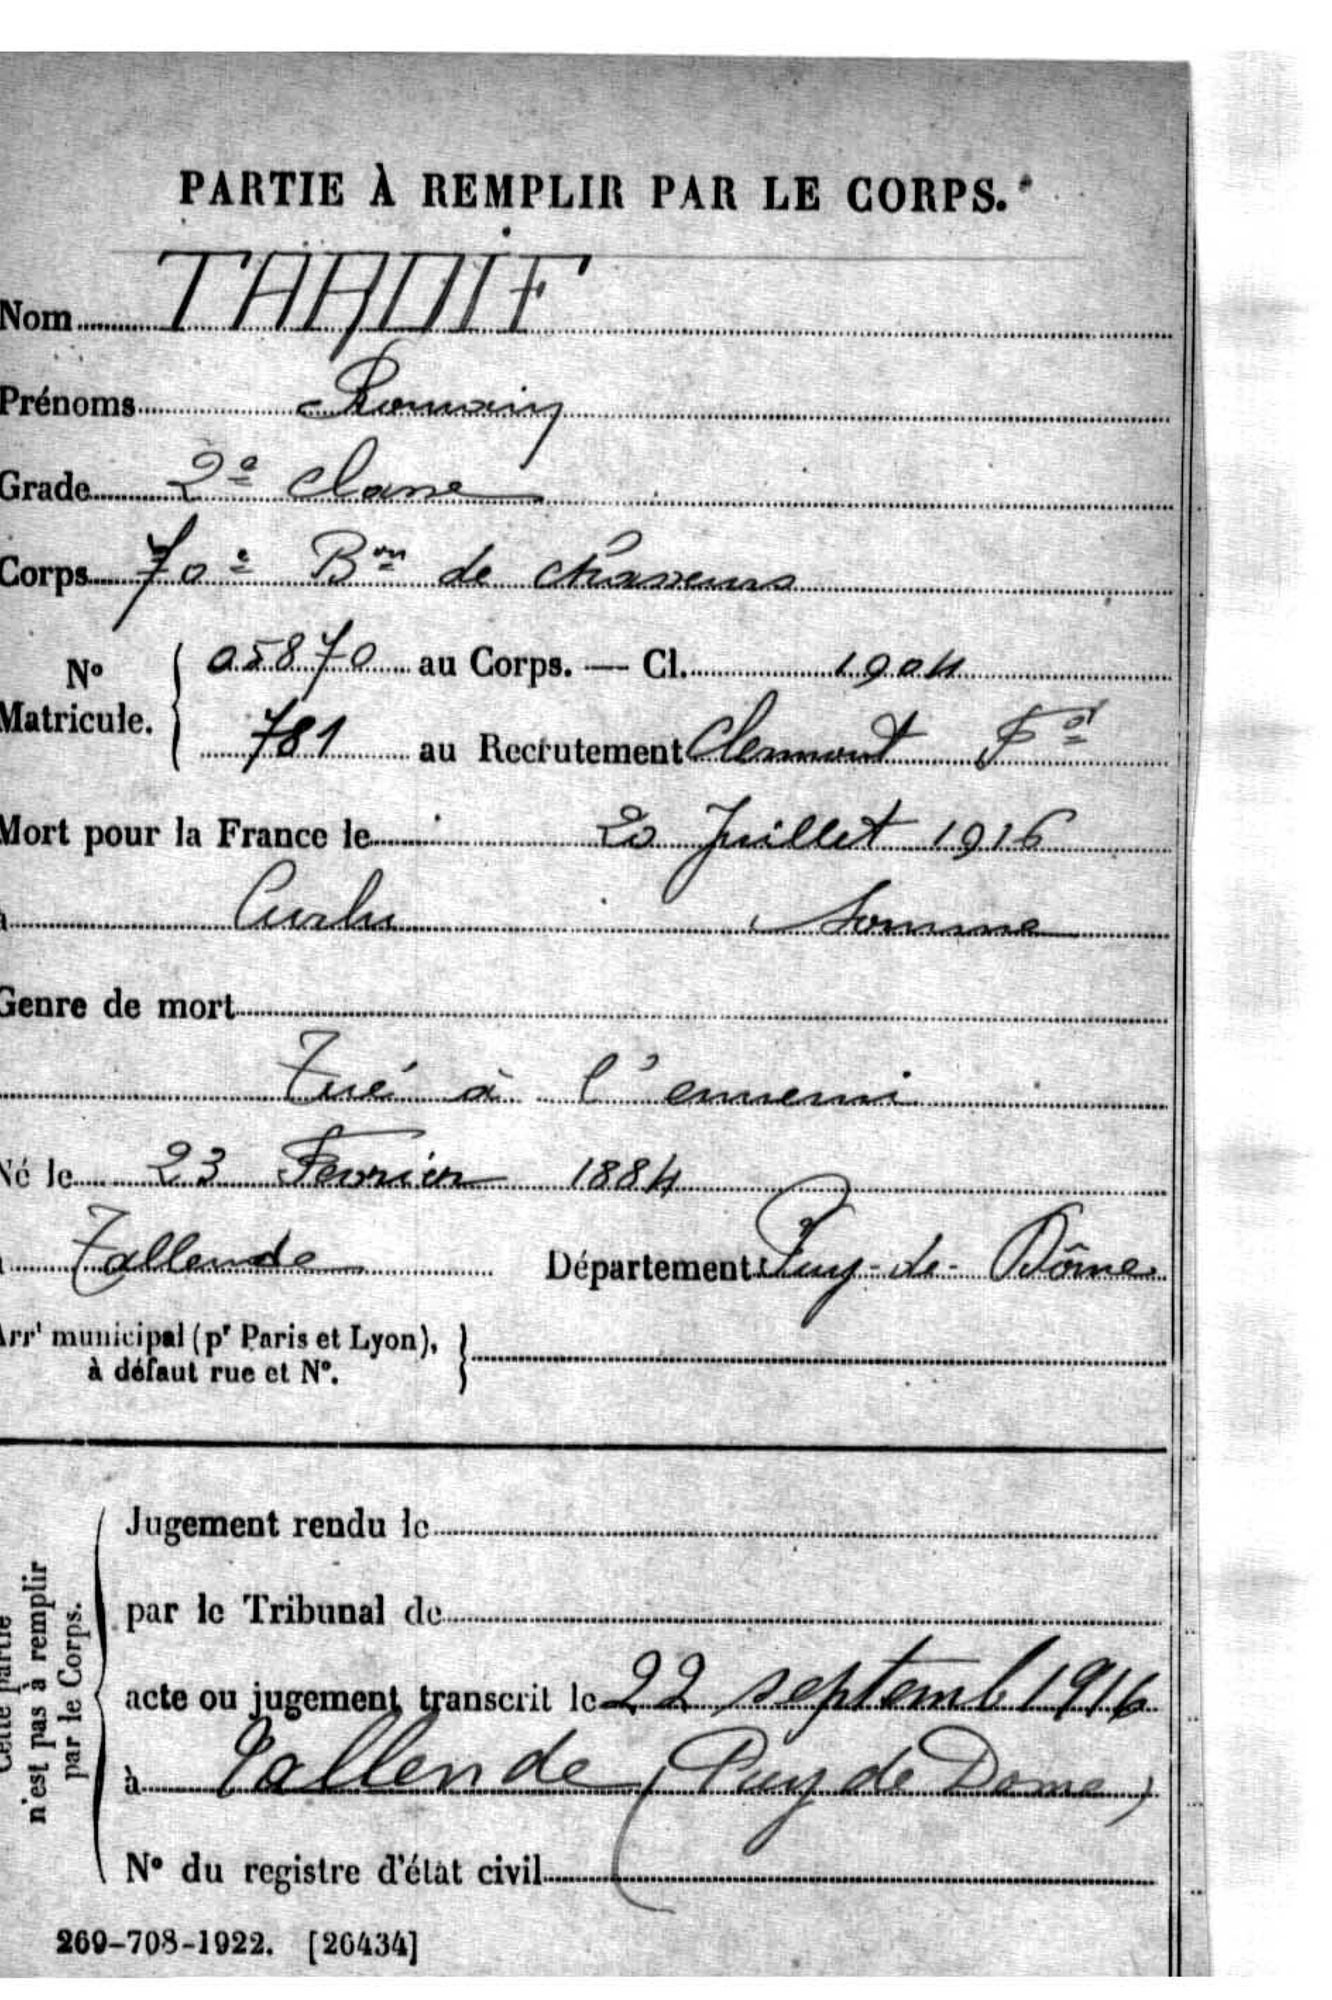 PARTIE À REMPLIR PAR LE CORPS.
Nom TARDIF
Prénoms Romain
Grade 2e classe
Corps 70e Bon de chasseurs
No Matricule. { 05870 au Corps. — Cl. 1904
781 au Recrutement Clermont Fd
Mort pour la France le 20 Juillet 1916
à Curlu Somme
Genre de mort
Tué à l'ennemi
Né le 23 Fevrier 1884
à Tallende Département Puy-de-Dôme
Arrt municipal (pr Paris et Lyon), à défaut rue et No. }
Cette partie n'est pas à remplir par le Corps.
Jugement rendu le
par le Tribunal de
acte ou jugement transcrit le 22 septemb 1916
à Tallende (Puy de Dome)
No du registre d'état civil
269-708-1922. [26434]